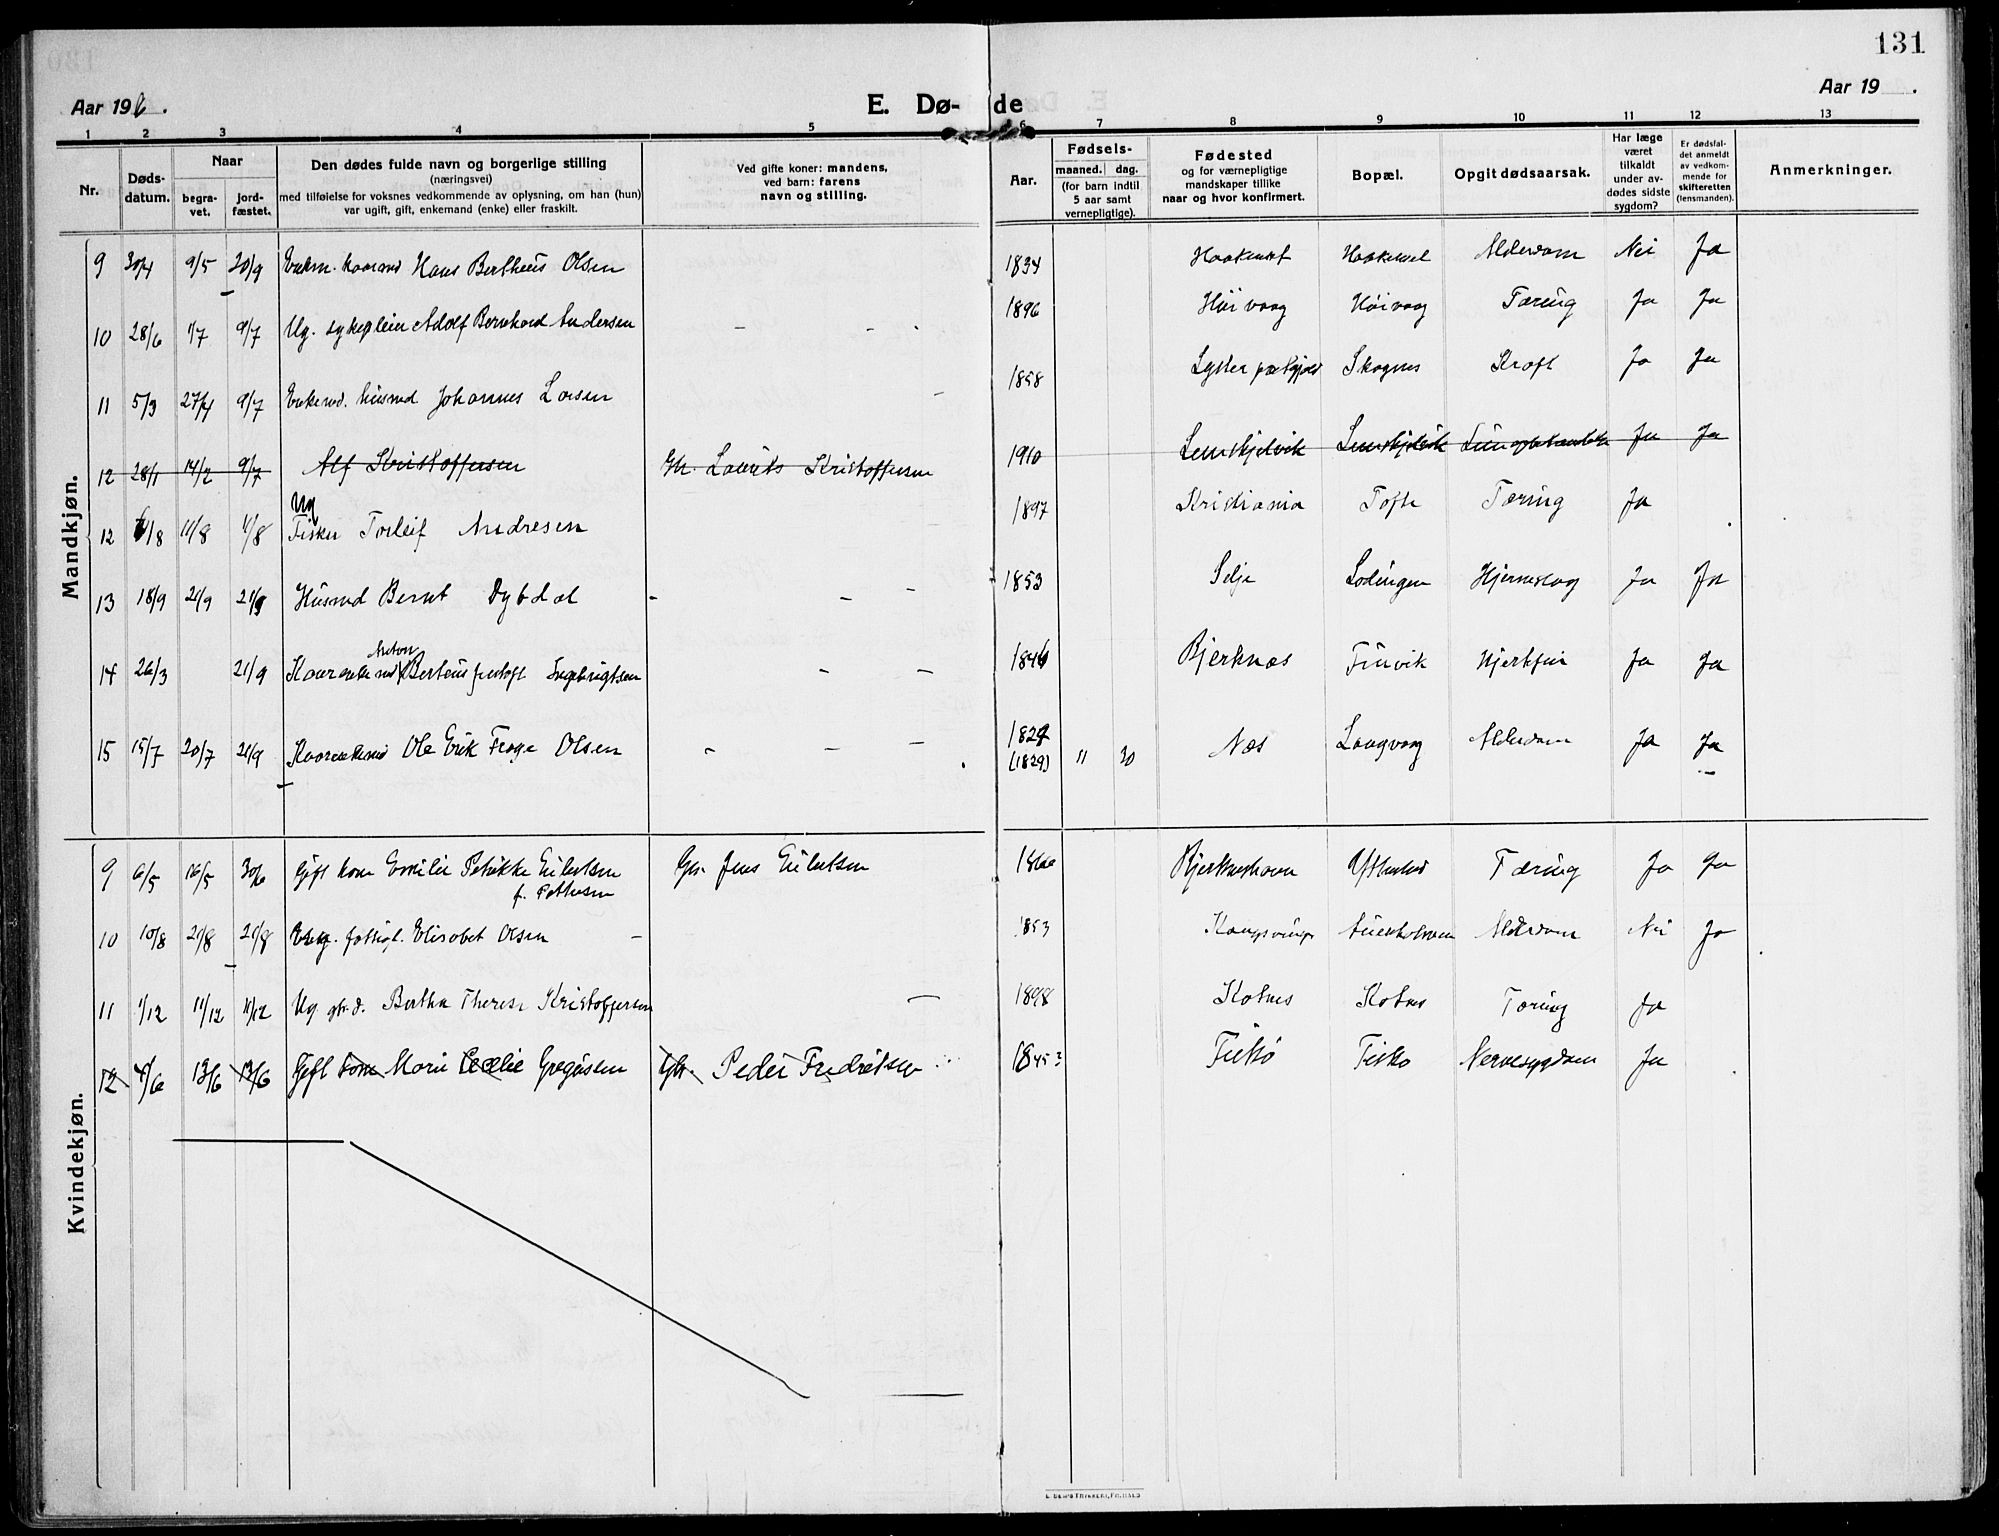 131
Aar 19 .
Aar 19 .
E. Dø- de
1 2 3 4 5 6 7 8 9 10 11 12 13
Nr.
Døds-
datum.
Naar
begra-
vet.
jord-
fæstet.
Den dødes fulde navn og borgerlige stilling
(næringsvei)
med tilføielse for voksnes vedkommende av oplysning, om han (hun)
var ugift, gift, enkemand (enke) eller fraskilt.
Ved gifte koner: mandens,
ved barn: farens
navn og stilling.
Aar.
Fødsels-
maaned. dag.
(for barn indtil
5 aar samt
vernepligtige).
Fødested
og for værnepligtige
mandskaper tillike
naar og hvor konfirmert.
Bopæl.
Opgit dødsaarsak.
Har læge
været
tilkaldt
under av-
dødes sidste
sygdom?
Er dødsfal-
det anmeldt
av vedkom-
mende for
skifteretten
(lensmanden).
Anmerkninger.
Mandkjøn.
9 30/4 9/5 20/9 Enkem. kaarmd Hans Bertheus Olsen 1834 Alderdom Nei Ja
10 28/6 1/7 9/7 Ug. sykepleier Adolf Bernhard Andersen - - 1896 Høivaag Høivaag Tæring Ja Ja
11 5/3 27/4 9/7 Enkemd. husmd Johannes Larsen - 1858 Skognes Kræft Ja Ja
12 28/1 14/2 9/7 Alf Kristoffersen Gbr. Laurits Kristoffersen 1910 Ja Ja
Ug
12 /8 11/8 11/8 Fisker Torleif Andresen 1897 Kristiania Tofte Tæring Ja
13 18/9 21/9 21/9 Husmd Bernt Dybdal - - - 1853 Selje Lødingen Hjerneslag Ja Ja
Anton
14 26/3 21/9 Ingebrigtsen - - 1846 Bjerknæs Finvik Ja Ja
15 15/7 20/7 21/9 Ole Erik Frage Olsen - - - 182 Næs Langvaag Alderdom Ja Ja
(1829) 11 30
Kvindekjøn.
9 6/5 16/5 30/6 Gift kone Emilie Petrikke Eilertsen Gbr. Jens Eilertsen 1866 Tæring Ja Ja
f. Pettersen
10 10/8 21/8 21/8 fattigl. Elisabet Olsen - 1853 Kongsvinger Alderdom Nei Ja
11 1/12 11/12 11/12 Ug. gbr.d. Bertha Therese Kristoffersen - 1898 Kobnes Kobnes Tæring Ja
12 4/6 13/6 13/6 Gift kone Marie Cecelie Gregusen Gbr. Peder Fredriksen 1845 3 Fiskø Fiskø Nervesygdom Ja